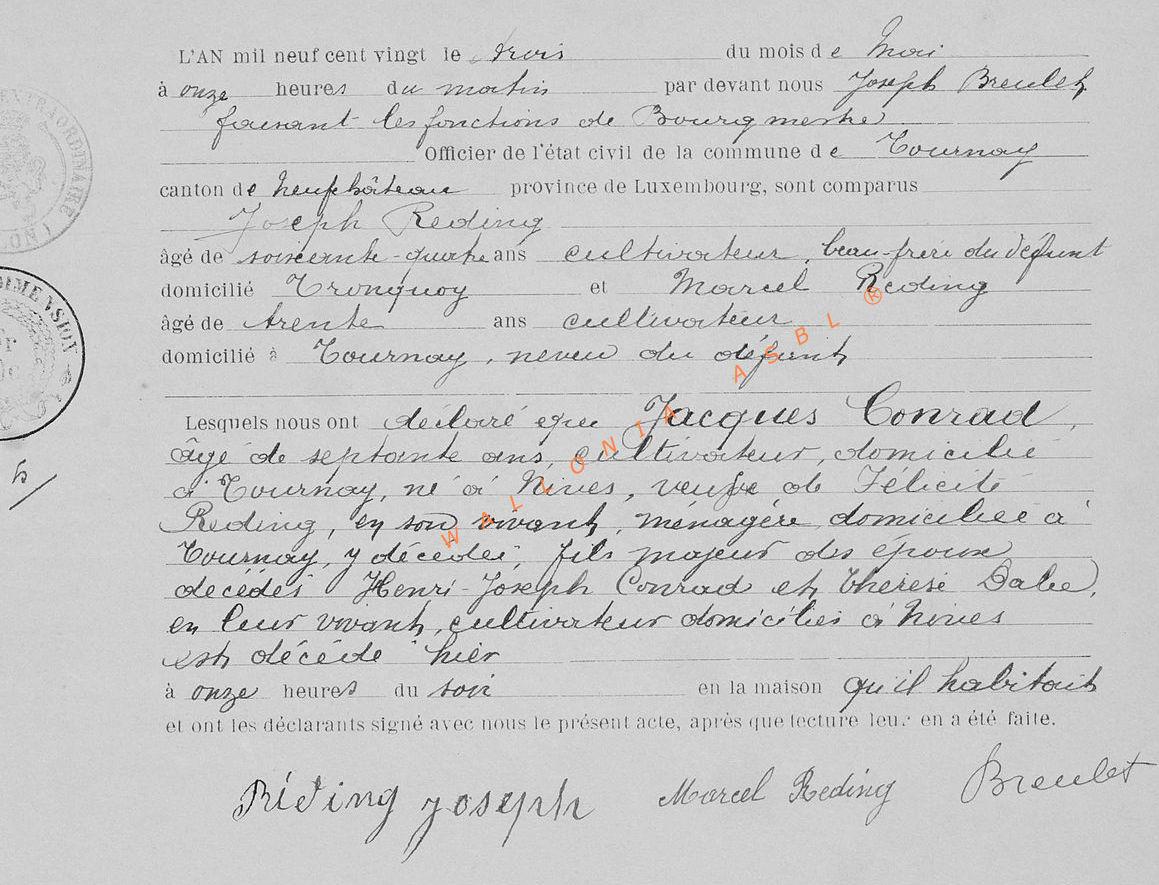 L'AN mil neuf cent vingt le trois du mois de Mai
à onze heures du matin par devant nous Joseph Breulet
faisant les fonctions de Bourgmestre
Officier de l'état civil de la commune de Tournay
canton de Neufchâteau province de Luxembourg, sont comparus
Joseph Reding
âgé de soixante-quatre ans cultivateur, beau-frère du défunt
domicilié Tronquoy et Marcel Reding
âgé de trente ans cultivateur
domicilié à Tournay, neveu du défunt
Lesquels nous ont déclaré que Jacques Conrad,
âgé de septante ans, cultivateur, domicilié
à Tournay, né à Nives, veuf de Félicité
Reding, en son vivant, ménagère domiciliée à
Tournay, y décédée, fils majeur des époux
décédés Henri-Joseph Conrad et Thérèse Dabe,
en leur vivant, cultivateur domiciliés à Nives
est décédé hier
à onze heures du soir en la maison qu'il habitait
et ont les déclarants signé avec nous le présent acte, après que lecture leur en a été faite.
Réding Joseph Marcel Reding Breulet
WALLONIA ASBL ®